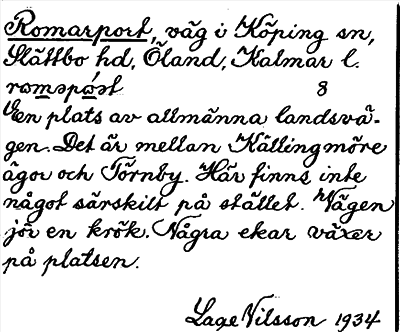 Romarport, väg i Köping sn,
Slättbo hd, Öland, Kalmar l.
romaport 8
En plats av allmänna landsvä-
gen. Det är mellan Källingmöre
ägor och Törnby. Här finns inte
något särskilt på stället. Vägen
jör en krök. Några ekar växer
på platsen.
Lage Nilsson 1934